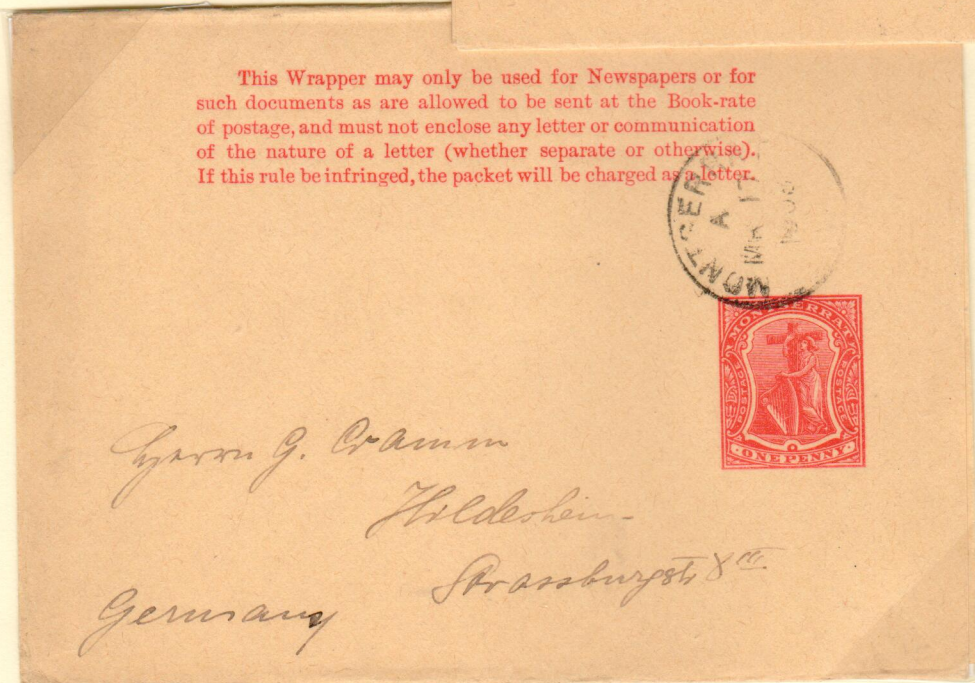 This Wrapper may only be used for Newspapers or for
such documents as are allowed to be sent at the Book-rate
of postage, and must not enclose any letter or communication
of the nature of a letter (whether separate or otherwise).
If this rule be infringed, the packet will be charged as a letter.
A
MONTSERRAT
POSTAGE POSTAGE
ONE PENNY
Herrn G. Cramm
Hildesheim
Strassburgstr 8 III
Germany